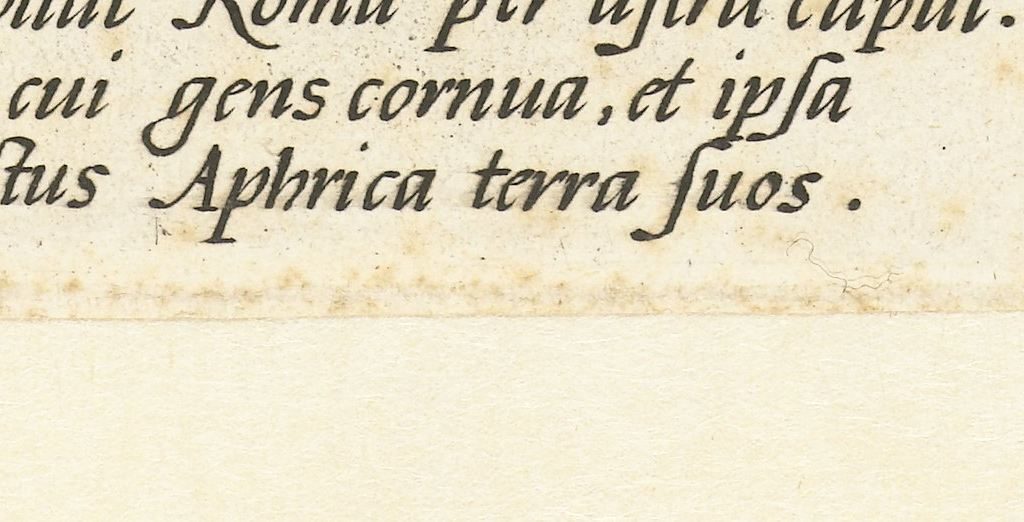 Roma per aſtra caput.
cui gens cornua, et ipſa
ctus Aphrica terra ſuos.